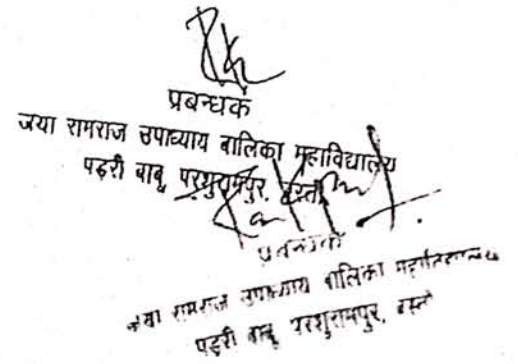 प्रबन्धक
जया रामराज उपाध्याय बालिका महाविद्यालय
पढ़री बाबू, परशुरामपुर, बस्ती
प्रबन्धक
जया रामराज उपाध्याय बालिका महाविद्यालय
पढ़री बाबू परशुरामपुर, बस्ती